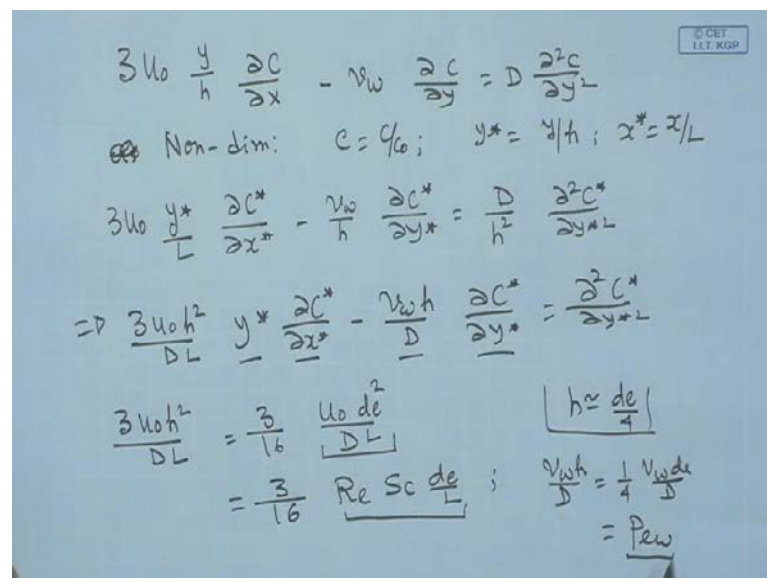 © CET
I.I.T. KGP
3u₀ y/h ∂C/∂x - v_w ∂c/∂y = D ∂²c/∂y²
Non-dim: C = C/C₀; y* = y/h; x* = x/L
3u₀ y*/L ∂C*/∂x* - v_w/h ∂C*/∂y* = D/h² ∂²C*/∂y*²
⇒ 3u₀h²/DL y* ∂C*/∂x* - v_w h/D ∂C*/∂y* = ∂²C*/∂y*²
3u₀h²/DL = 3/16 u₀ de²/DL h ≃ de/4
= 3/16 Re Sc de/L ; v_w h/D = 1/4 v_w de/D
= Pe_w